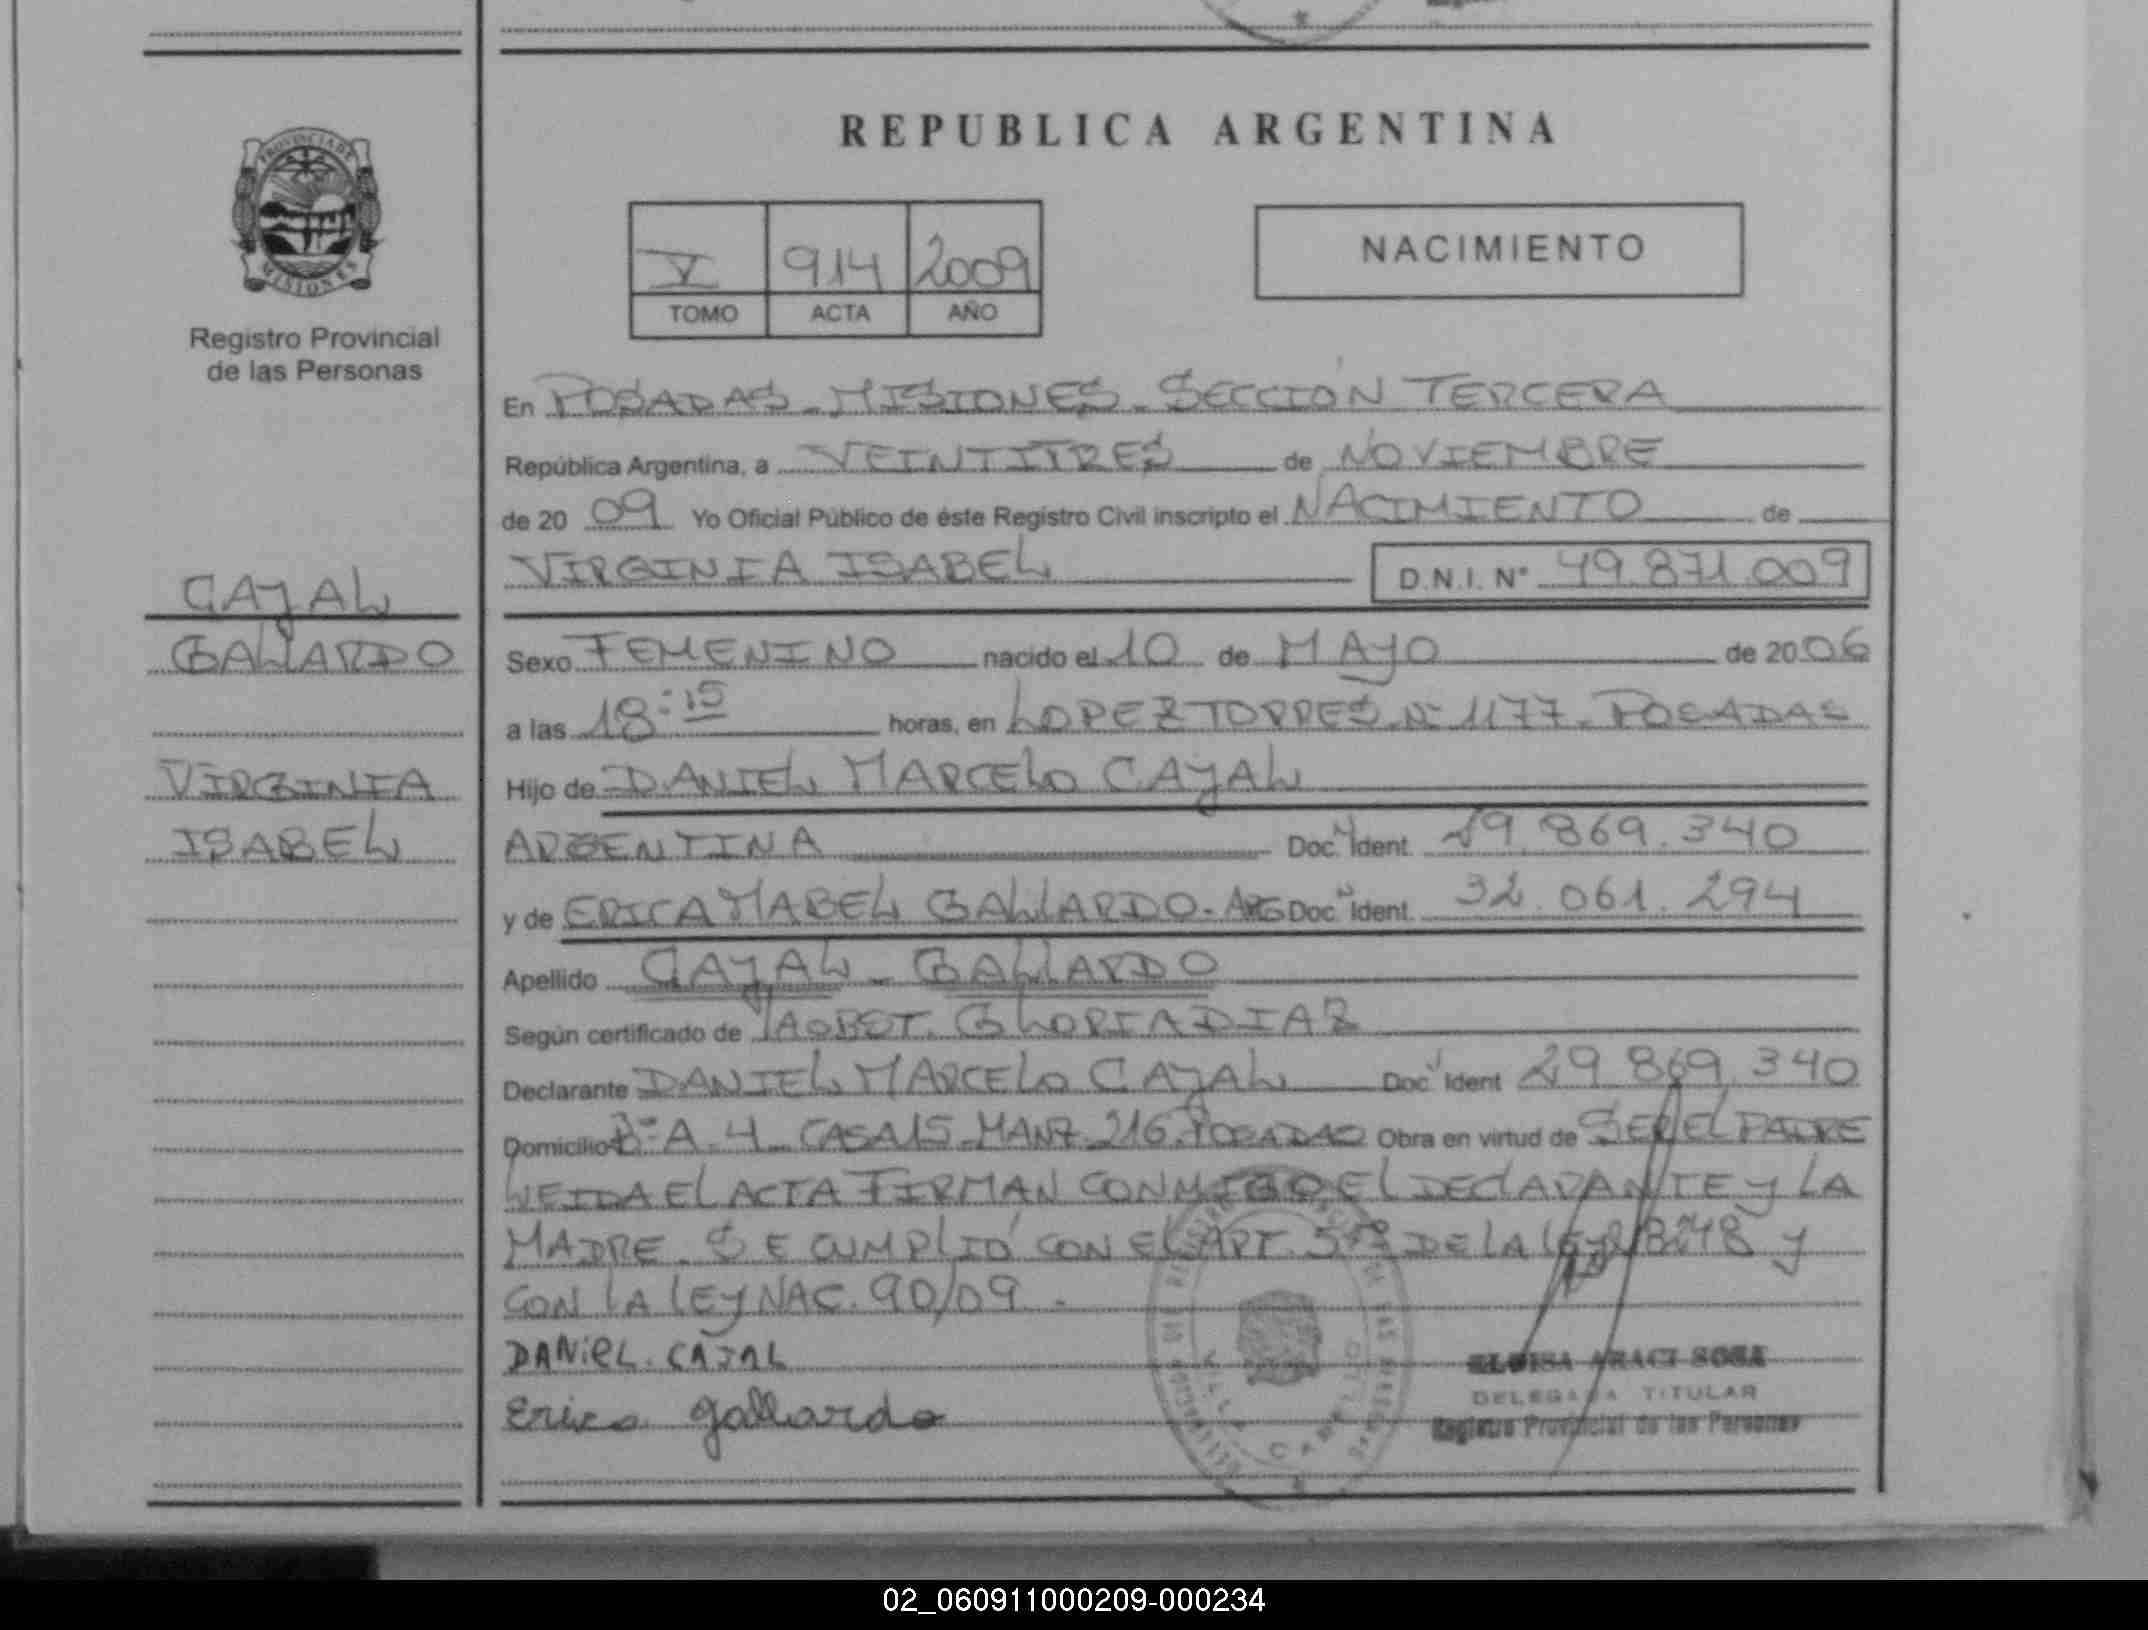 PROVINCIA DE
MISIONES
Registro Provincial
de las Personas
CAJAL
GALLARDO
VIRGINIA
ISABEL
REPUBLICA ARGENTINA
V 914 2009
TOMO ACTA AÑO
NACIMIENTO
En POSADAS - MISIONES - SECCIÓN TERCERA
República Argentina, a VEINTITRES de NOVIEMBRE
de 20 09 Yo Oficial Público de éste Registro Civil inscripto el NACIMIENTO de
VIRGINIA ISABEL D.N.I. N° 49.871.009
Sexo FEMENINO nacido el 10 de MAYO de 2006
a las 18:15 horas, en LOPEZ TORRES N° 1177 - POSADAS
Hijo de DANIEL MARCELO CAJAL
ARGENTINA Doc. Ident. 29.869.340
y de ERICA MABEL GALLARDO - ARG Doc. Ident. 32.061.294
Apellido CAJAL - GALLARDO
Según certificado de OBST. GLORIA DIAZ
Declarante DANIEL MARCELO CAJAL Doc. Ident 29.869.340
Domicilio B° A-4 CASA 15 MANZ. 216 POSADAS Obra en virtud de SER EL PADRE
LEIDA EL ACTA FIRMAN CONMIGO EL DECLARANTE y LA
MADRE. SE CUMPLIÓ CON EL ART. DE LA LEY 18248 y
CON LA LEY NAC. 90/09 -
DANIEL. CAJAL
Erica gallardo
ELOISA ARACI SOSA
DELEGADA TITULAR
Registro Provincial de las Personas
02_060911000209-000234